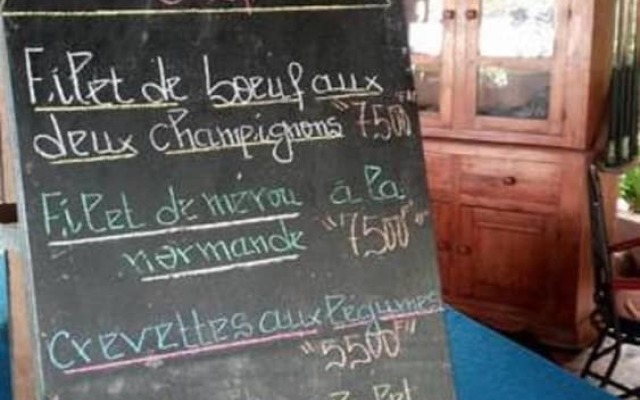 Filet de boeuf aux
deux champignons "7500F"
Filet de mérou à la
normande "7500F"
Crevettes aux légumes
"5500F"